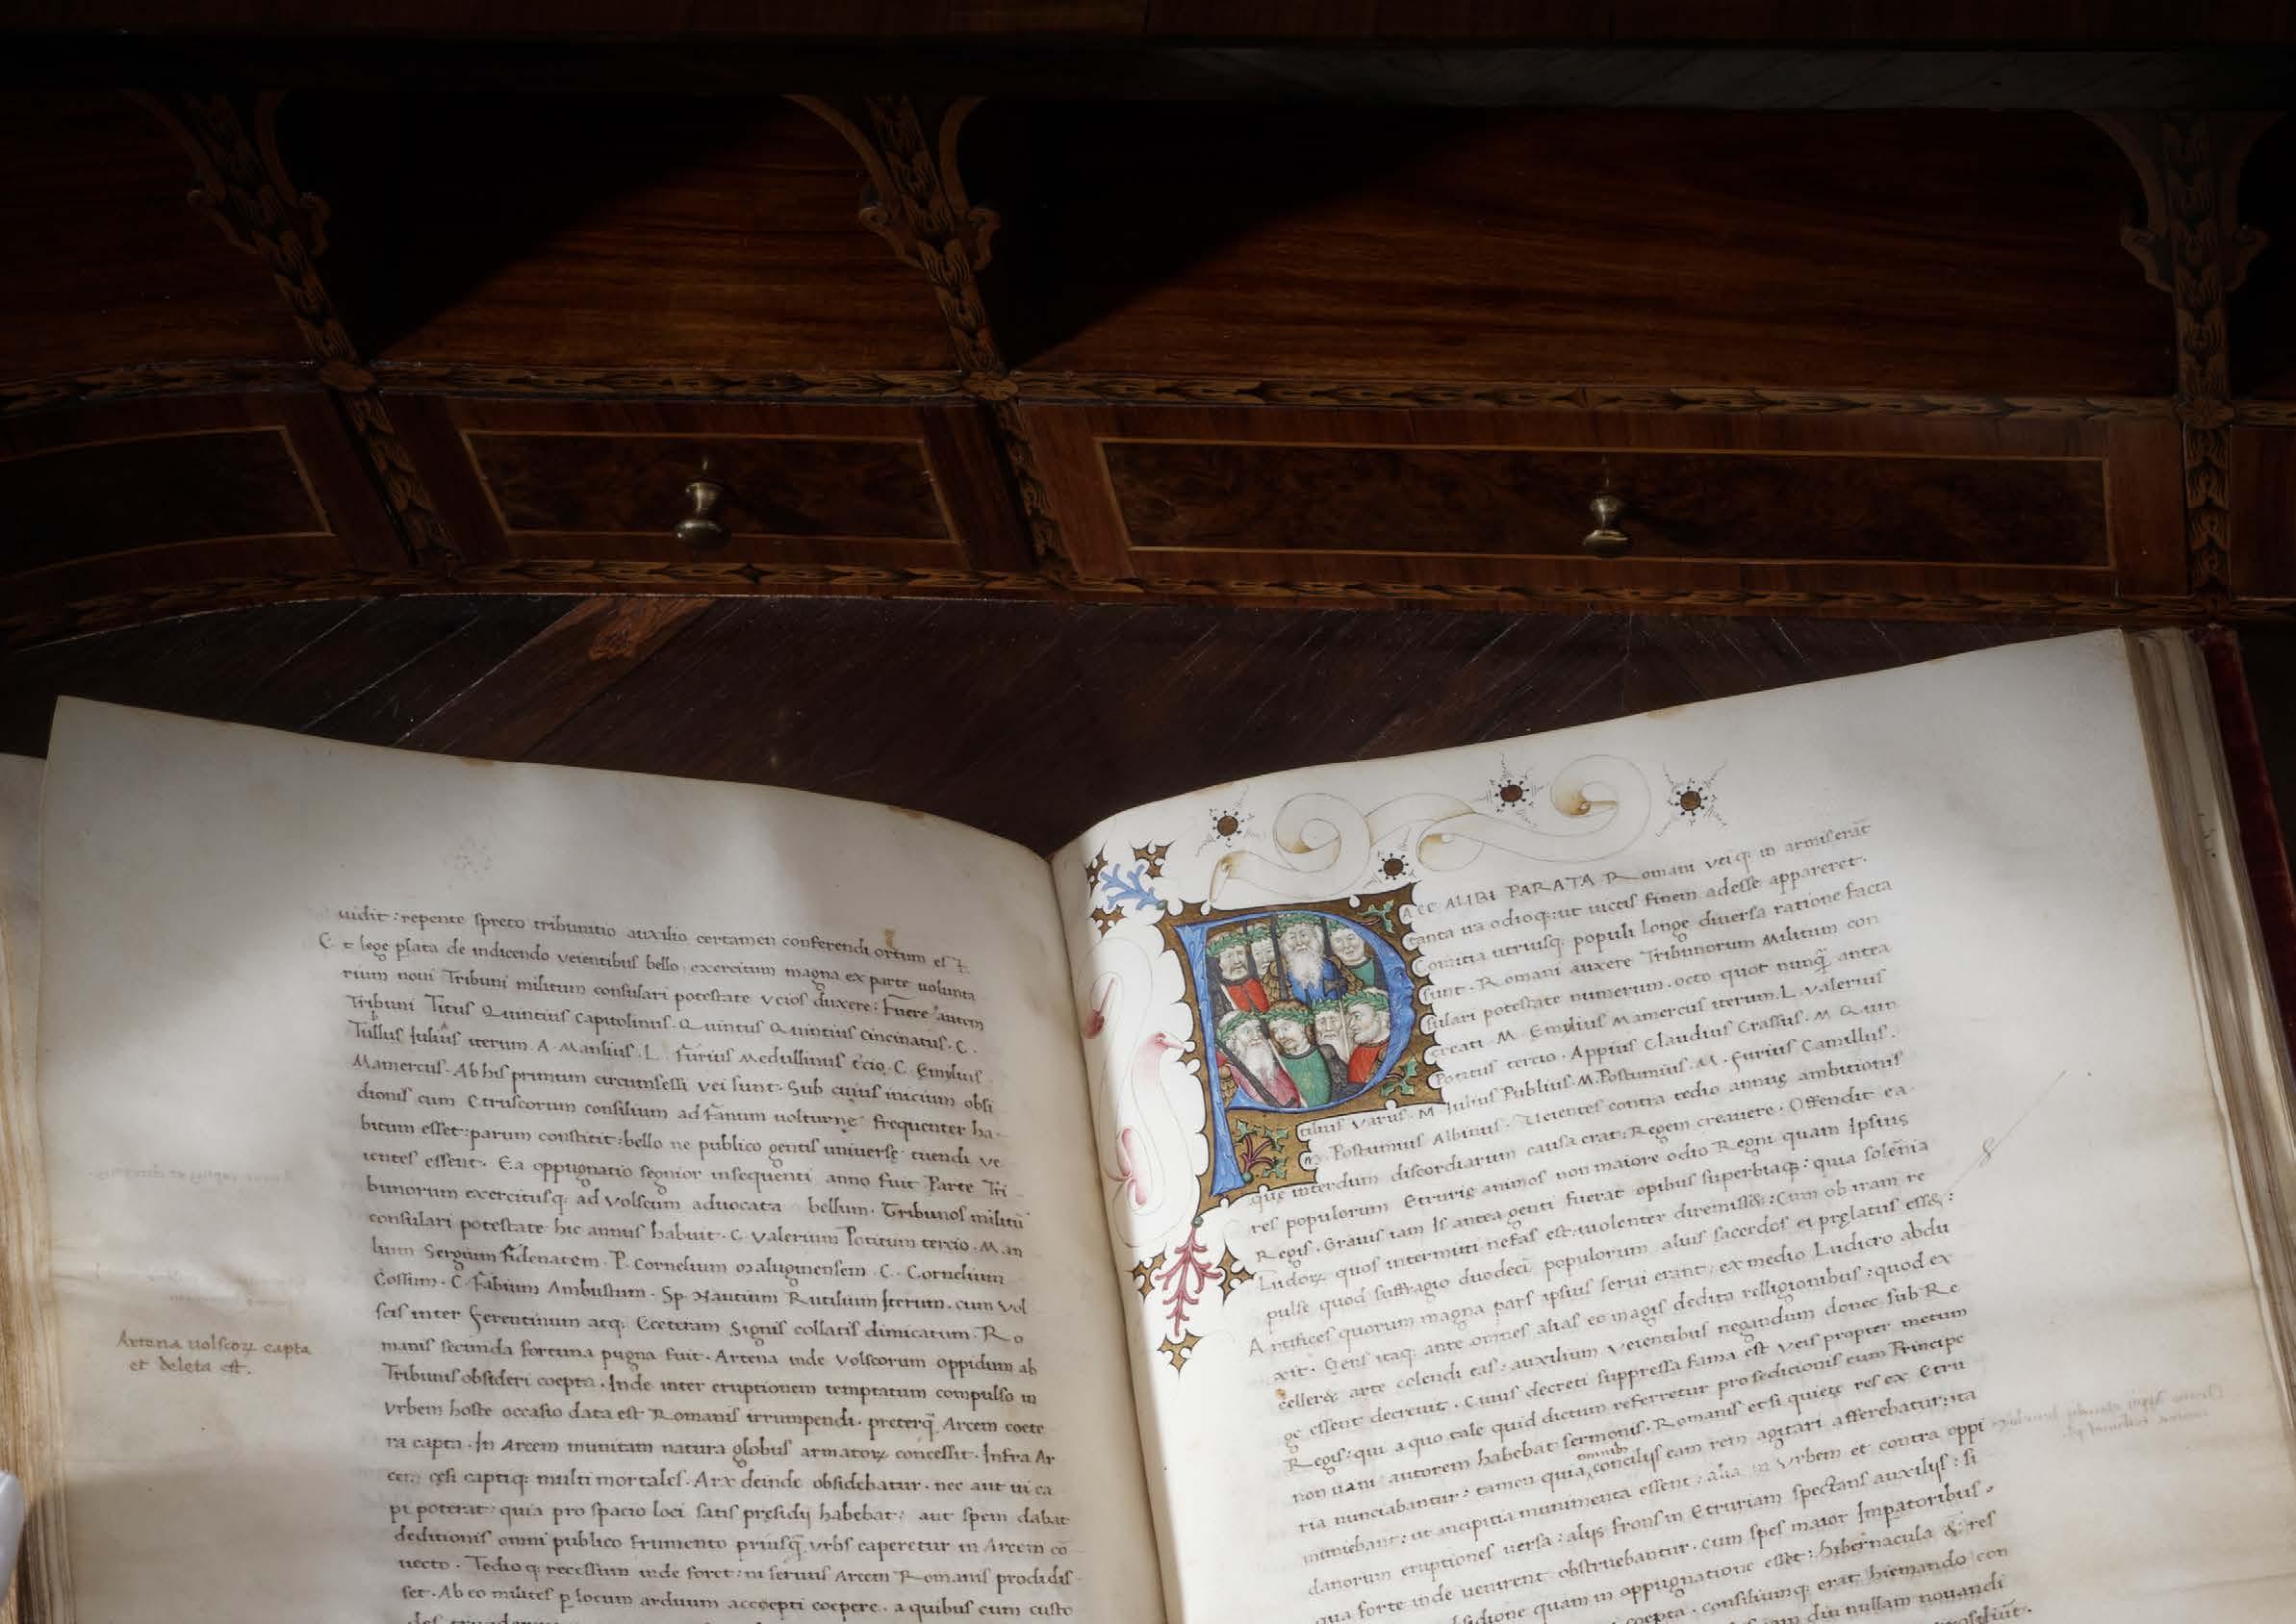 uidit : repente spreto tribunitio auxilio certamen conferendi ortum est.
Et lege plata de indicendo veientibus bello exercitum magna ex parte volunta
rium noui Tribuni militum consulari potestate veios duxere : Fuere autem
Tribuni Titus Quintius Capitolinus. Quintus Quintius Cincinatus. C.
Tullus Iulius iterum A. Manlius. L. Furius Medullinus t̃cio. C. Emylius
Mamercus. Ab his primum circumsessi vei sunt. Sub cuius inicium obsi
dionis cum Etruscorum consilium ad Fanum volturnę frequenter ha-
bitum esset : parum constitit : bello ne publico gentis universę tuendi ve
ientes essent. Ea oppugnatio segnior insequenti anno fuit Parte Tri
bunorum exercitusq; ad Volscum aduocata bellum. Tribunos militũ
consulari potestate hic annus habuit. C. Valerium Potitum tercio. Man
lium Sergium fidenatem. P. Cornelium Maluginensem. C. Cornelium
Cossum. C. Fabium Ambustum. Sp. Nautium Rutilium Iterum. cum Vol
scis inter Ferentinum atq; Eceteram Signis collatis dimicatum. Ro
manis secunda fortuna pugna fuit. Artena inde Volscorum oppidum ab
Tribunis obsideri coepta. Inde inter eruptionem temptatum compulso in
vrbem hoste occasio data est Romanis irrumpendi. preterq̃ Arcem coete
ra capta. In Arcem munitam natura globus armatoꝝ concessit. Infra Ar
cem cęsi captiq; multi mortales. Arx deinde obsidebatur. nec aut ui ca
pi poterat : quia pro spacio loci satis pręsidij habebat : aut spem dabat
deditionis omni publico frumento priusq̃ vrbs caperetur in Arcem cõ
uecto. Tedioq; recessum inde foret : ni seruus Arcem Romanis prodidis
set. Ab eo milites p̱ locum arduum accoepti coepere. a quibus cum custo
Artena uolscoꝝ capta
et deleta est.
P
ACE ALIBI PARATA Romani veiq; in armis erãt
tanta ira odioq; : ut uictis finem adesse appareret.
Comitia utriusq; populi longe diuersa ratione facta
sunt. Romani auxere Tribunorum Militum con
sulari potestate numerum. octo quot nunq̃ antea
creati. M. Emilius Mamercus iterum. L. Valerius
Potitus tercio. Appius Claudius Crassus. M. Quin
tilius Varus. M. Iulius Publius. M. Postumius. M. Furius Camillus.
M. Postumius Albinus. Veientes contra tedio annuę ambitionis
que interdum discordiarum causa erat : Regem creauere. Offendit ea
res populorum Etrurię animos non maiore odio Regni quam Ipsius
Regis. Grauis iam Is antea genti fuerat opibus superbiaq; : quia solẽnia
Ludoꝝ quos intermitti nefas est : uiolenter diremiss& : Cum ob iram re
pulsę quod suffragio duodecĩ populorum alius sacerdos ei prelatus ess& :
Artifices quorum magna pars ipsius serui erant, ex medio Ludicro abdu
xit. Gens itaq; ante omnes alias eo magis dedita religionibus : quod ex
celler& arte colendi eas : auxilium veientibus negandum donec sub Re
ge essent decreuit. Cuius decreti suppressa fama est Veis propter metum
Regis : qui a quo tale quid dictum referretur pro sedicionis eum Principe
non uani autorem habebat sermonis. Romanis etsi quiete res ex Etru
ria nunciabantur : tamen quia omnib; concilijs eam rem agitari afferebatur : ita
muniebant : ut ancipitia munimenta essent : alia in Vrbem et contra oppi
danorum eruptiones uersa : alijs frons in Etruriam spectans auxilijs : si
qua forte inde uenirent obstruebantur. cum spes maior Impatoribus
obsidione quam in oppugnatione esset : hibernacula & res
coepta. consiliumq; erat hiemando con
iam diu nullam nouandi